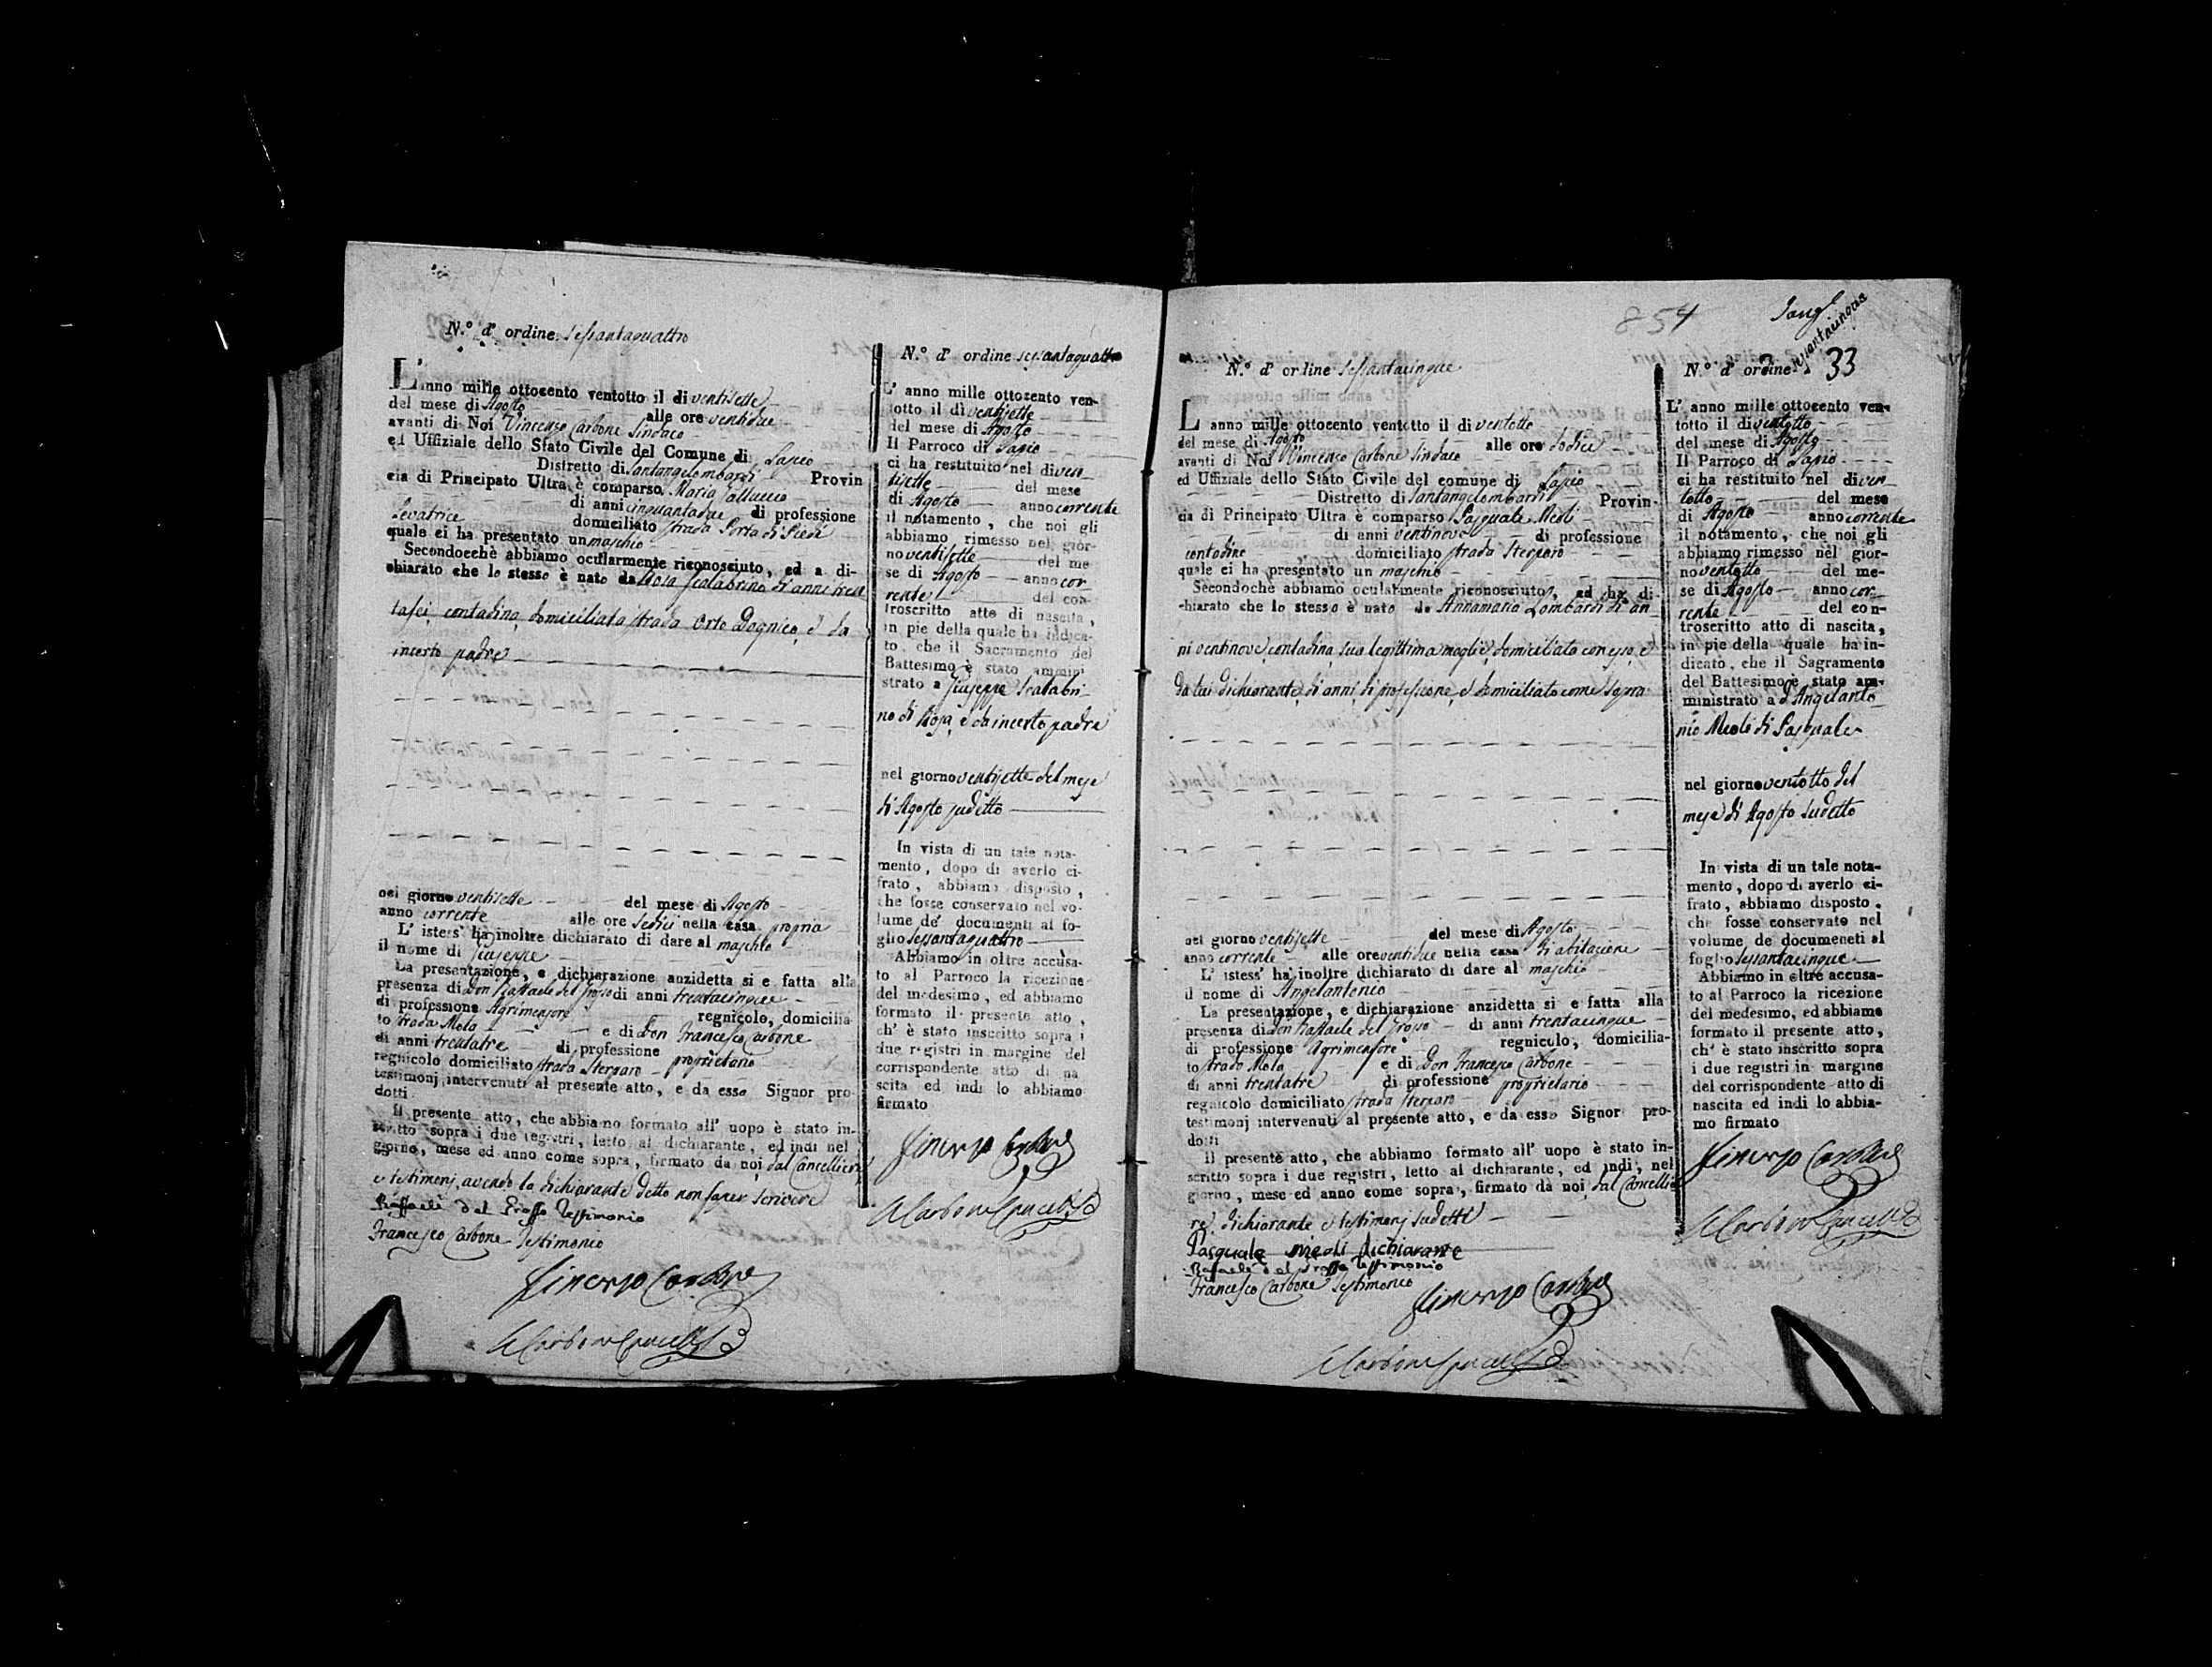 N.º d' ordine sessantaquattro
L' anno mille ottocento ventotto il di ventisette
del mese di Agosto alle ore ventidue
avanti di Noi Vincenzo Carbone Sindaco
ed Uffiziale dello Stato Civile del Comune di Lapio
Distretto di Santangelombardi Provin
cia di Principato Ultra è comparso Maria
di anni cinquantadue di professione
Levatrice domiciliato strada Porta di Piedi
quale ci ha presentato un maschio
Secondocchè abbiamo ocularmente riconosciuto, ed a di-
chiarato che lo stesso è nato da Rosa Scalabrino di anni tren
tasei, contadina, domiciliata strada Orto Dognico, e da
incerto padre
nel giorno ventisette del mese di Agosto
anno corrente alle ore sedici nella casa propria
L' istess' ha inoltre dichiarato di dare al maschio
il nome di Giuseppe
La presentazione, e dichiarazione anzidetta si e fatta alla
presenza di Don Raffaele del Grosso di anni trentacinque
di professione Agrimensore regnicolo, domicilia
to strada Mola e di Don Francesco Carbone
di anni trentatre di professione proprietario
regnicolo domiciliato strada Sterparo
testimonj intervenuti al presente atto, e da esso Signor pro
dotti
Il presente atto, che abbiamo formato all' uopo è stato in-
scritto sopra i due registri, letto al dichiarante, ed indi nel
giorno, mese ed anno come sopra, firmato da noi, dal Cancelliere
e testimonj, avendo la dichiarante detto non saper scrivere
Raffaele del Grosso Testimonio
Francesco Carbone Testimonio
Vincenzo Carbone
Carbone Cancell
N.º d' ordine sessantaquattro
L' anno mille ottocento ven-
totto il dì ventisette
del mese di Agosto
Il Parroco di Lapio
ci ha restituito nel di ven
tisette del mese
di Agosto anno corrente
il notamento, che noi gli
abbiamo rimesso nel gior-
no ventisette del me
se di Agosto anno cor
rente del con
troscritto atto di nascita,
in pie della quale ha indica-
to, che il Sacramento del
Battesimo è stato ammini
strato a Giuseppe Scalabri
no di Rosa, e da incerto padre
nel giorno ventisette del mese
di Agosto sudetto
In vista di un tale nota-
mento, dopo di averlo ci-
frato, abbiamo disposto,
che fosse conservato nel vo-
lume de' documenti al fo-
glio sessantaquattro
Abbiamo in oltre accusa-
to al Parroco la ricezione
del medesimo, ed abbiamo
formato il presente atto,
ch' è stato inscritto sopra i
due registri in margine del
corrispondente atto di na
scita ed indi lo abbiamo
firmato
Vincenzo Carbone
Carbone Cancell
854
N.º d' ordine sessantacinque
L' anno mille ottocento ventotto il di ventotto
del mese di Agosto alle ore dodici
avanti di Noi Vincenzo Carbone Sindaco
ed Uffiziale dello Stato Civile del comune di Lapio
Distretto di Santangelombardi Provin-
cia di Principato Ultra è comparso Pasquale Meoli
di anni ventinove di professione
contadino domiciliato strada Sterparo
quale ci ha presentato un maschio
Secondochè abbiamo ocularmente riconosciuto, ed ha di-
chiarato che lo stesso è nato da Annamaria Lombardi di an
ni ventinove, contadina, sua legittima moglie, domiciliata con esso, e
da lui dichiarante, di anni, di professione, e domiciliato come sopra
nel giorno ventisette del mese di Agosto
anno corrente alle ore ventidue nella casa di abitazione
L' istess' ha inoltre dichiarato di dare al maschio
il nome di Angelantonio
La presentazione, e dichiarazione anzidetta si e fatta alla
presenza di Don Raffaele del Grosso di anni trentacinque
di professione Agrimensore regnicolo, domicilia-
to strada Mola e di Don Francesco Carbone
di anni trentatre di professione proprietario
regnicolo domiciliato strada Sterparo
testimonj intervenuti al presente atto, e da esso Signor pro-
dotti
Il presente atto, che abbiamo formato all' uopo è stato in-
scritto sopra i due registri, letto al dichiarante, ed indi, nel
giorno, mese ed anno come sopra, firmato da noi, dal Cancellie
re, dichiarante e testimonj sudetti
Pasquale Meoli dichiarante
Raffaele del Grosso Testimonio
Francesco Carbone Testimonio
Vincenzo Carbone
Carbone Cancell
sessantacinque
N.º d' ordine 33
L' anno mille ottocento ven-
totto il di ventotto
del mese di Agosto
Il Parroco di Lapio
ci ha restituito nel di ven
totto del mese
di Agosto anno corrente
il notamento, che noi gli
abbiamo rimesso nel gior-
no ventotto del me-
se di Agosto anno cor
rente del con-
troscritto atto di nascita,
in pie della quale ha in-
dicato, che il Sagramento
del Battesimo è stato am-
ministrato a d'Angelanto
nio Meoli di Pasquale
nel giorno ventotto del
mese di Agosto sudetto
In vista di un tale nota-
mento, dopo di averlo ci-
frato, abbiamo disposto,
che fosse conservato nel
volume de documeneti al
foglio sessantacinque
Abbiamo in oltre accusa-
to al Parroco la ricezione
del medesimo, ed abbiamo
formato il presente atto,
ch' è stato inscritto sopra
i due registri in margine
del corrispondente atto di
nascita ed indi lo abbia-
mo firmato
Vincenzo Carbone
Carbone Cancell